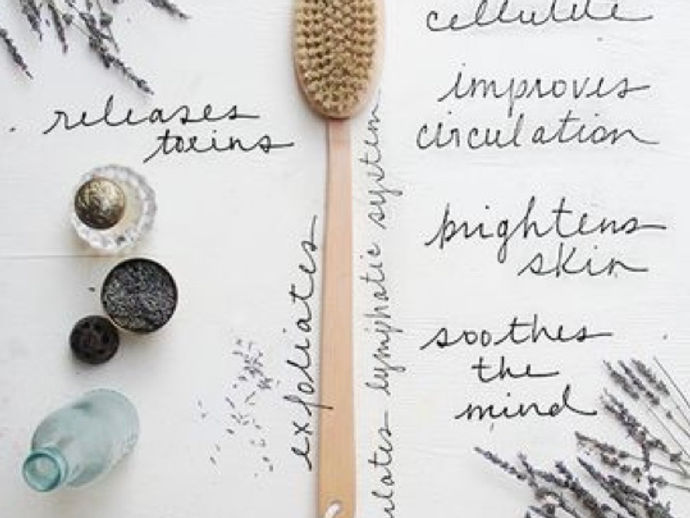 cellulite
releases
toxins
improves
circulation
exfoliates
lymphatic system
brightens
skin
soothes
the
mind